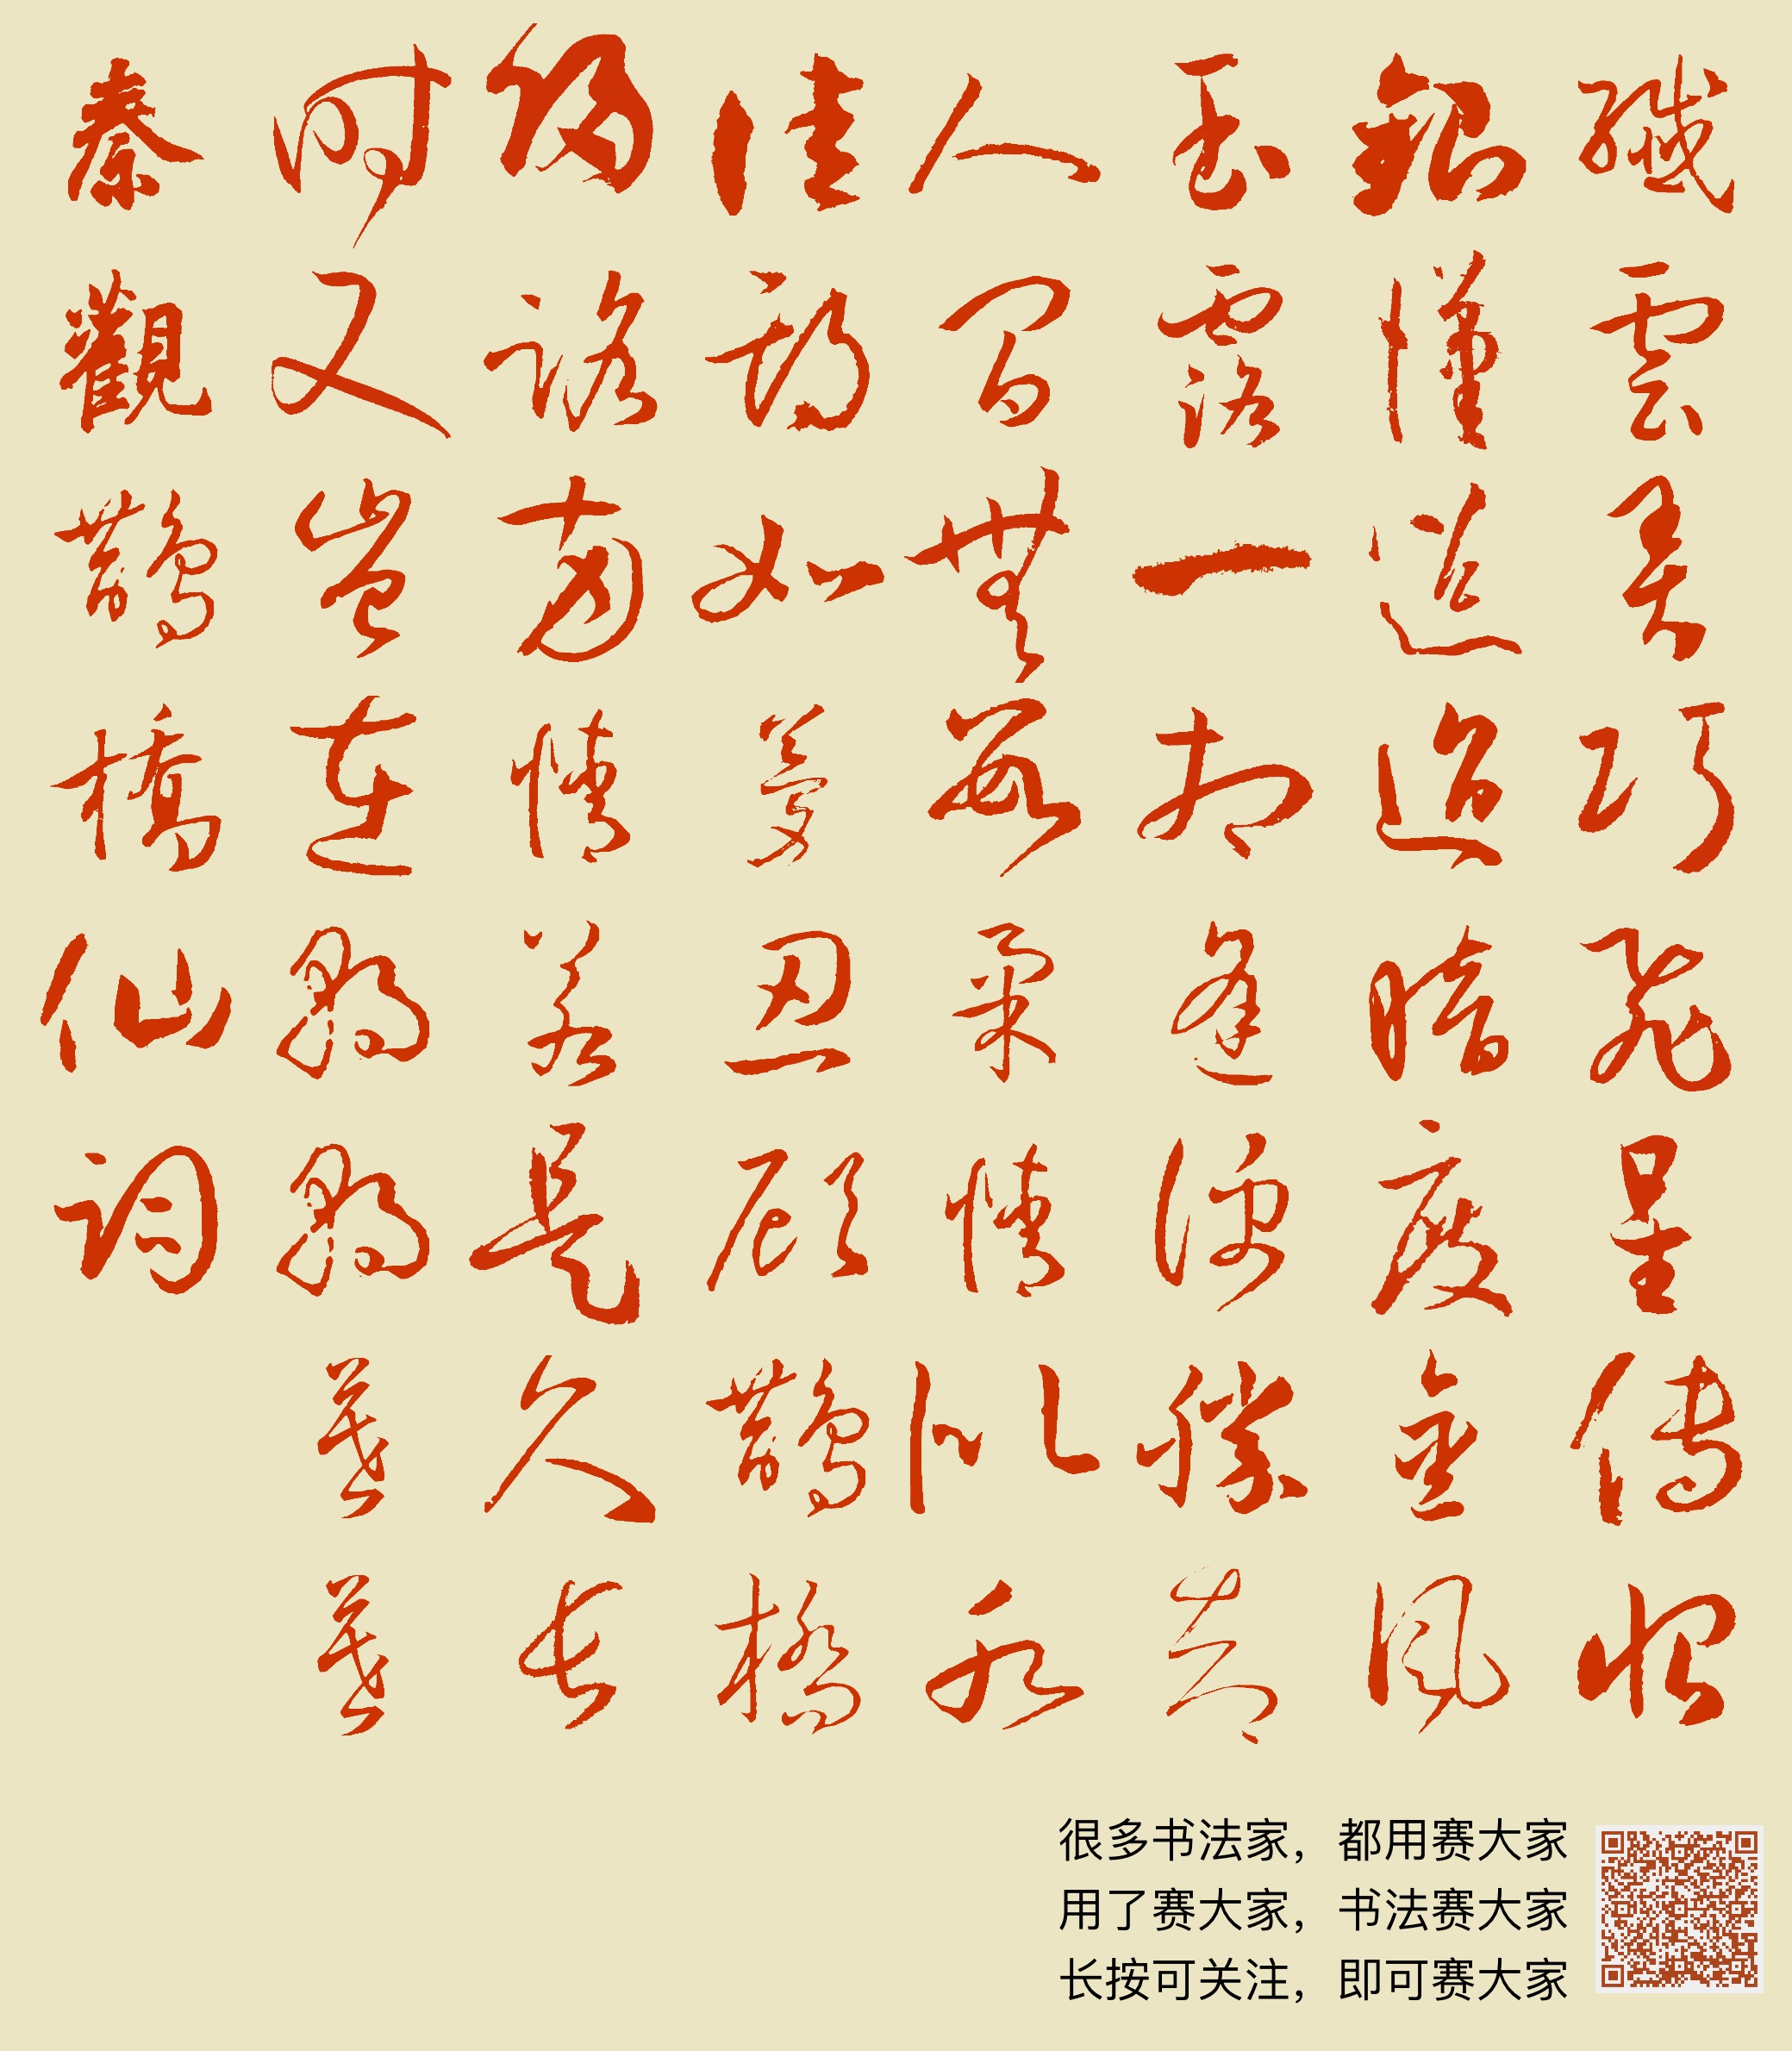 纖雲弄巧飛星傳恨
銀漢迢迢暗度金風
玉露一相逢便勝卻
人間無數柔情似水
佳期如夢忍顧鵲橋
歸路兩情若是久長
時又豈在朝朝暮暮
秦觀鵲橋仙詞
很多书法家，都用赛大家
用了赛大家，书法赛大家
长按可关注，即可赛大家